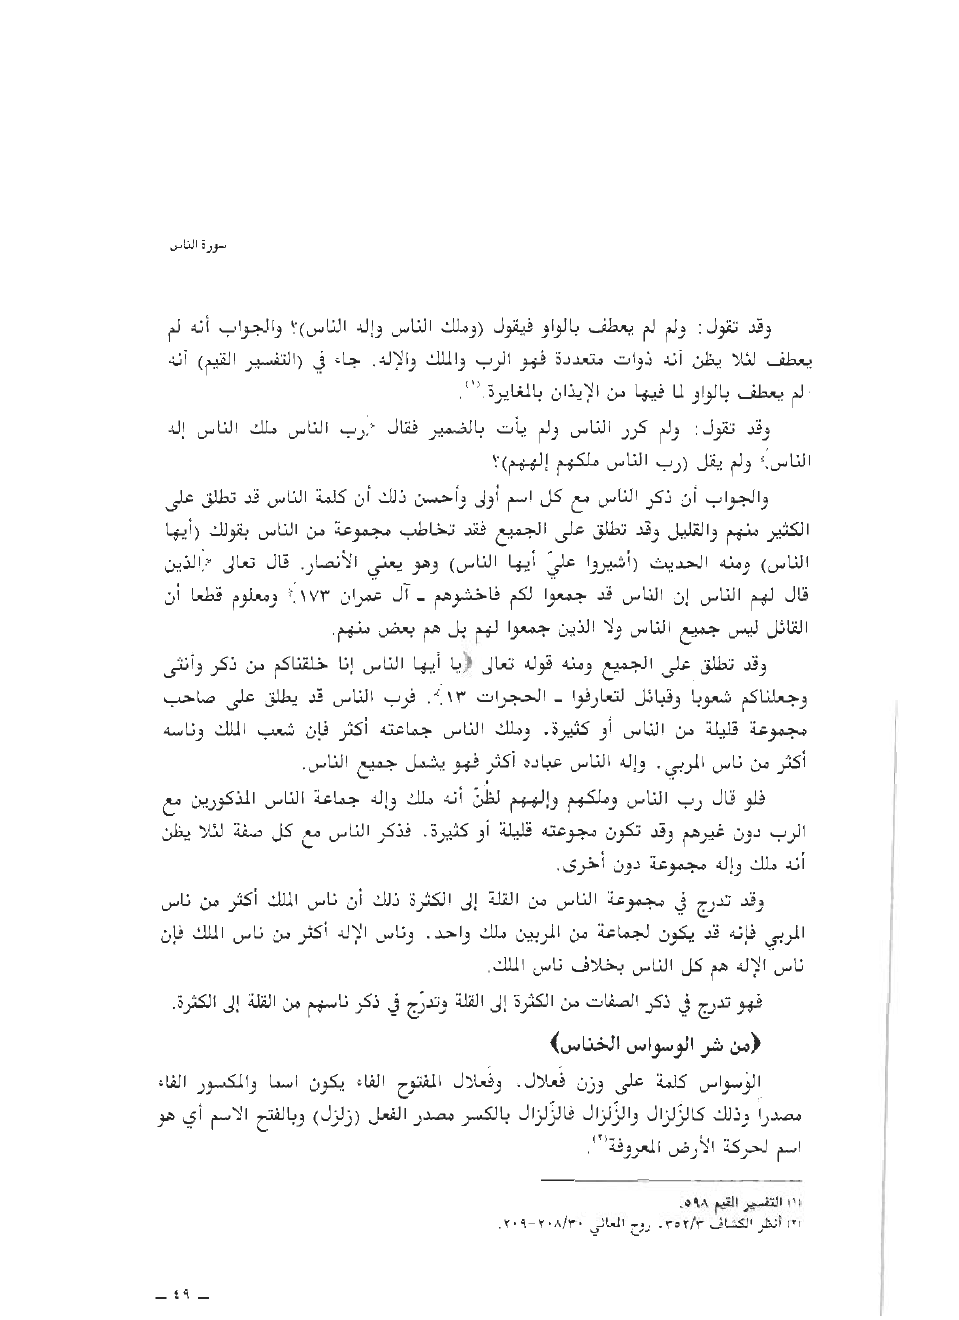 سورة الناس
وقد تقول: ولم لم يعطف بالواو فيقول (وملك الناس وإله الناس)؟ والجواب أنه لم
يعطف لئلا يظن أنه ذوات متعددة فهو الرب والملك والإله. جاء في (التفسير القيم) أنه
لم يعطف بالواو لما فيها من الإيذان بالمغايرة.(١).
وقد تقول: ولم كرر الناس ولم يأت بالضمير فقال ﴿رب الناس ملك الناس إله
الناس﴾ ولم يقل (رب الناس ملكهم إلههم)؟
والجواب أن ذكر الناس مع كل اسم أولى وأحسن ذلك أن كلمة الناس قد تطلق على
الكثير منهم والقليل وقد تطلق على الجميع فقد تخاطب مجموعة من الناس بقولك (أيها
الناس) ومنه الحديث (أشيروا عليّ أيها الناس) وهو يعني الأنصار. قال تعالى ﴿الذين
قال لهم الناس إن الناس قد جمعوا لكم فاخشوهم ـ آل عمران ١٧٣﴾ ومعلوم قطعا أن
القائل ليس جميع الناس ولا الذين جمعوا لهم بل هم بعض منهم.
وقد تطلق على الجميع ومنه قوله تعالى ﴿يا أيها الناس إنا خلقناكم من ذكر وأنثى
وجعلناكم شعوبا وقبائل لتعارفوا ـ الحجرات ١٣﴾. فرب الناس قد يطلق على صاحب
مجموعة قليلة من الناس أو كثيرة. وملك الناس جماعته أكثر فإن شعب الملك وناسه
أكثر من ناس المربي. وإله الناس عباده أكثر فهو يشمل جميع الناس.
فلو قال رب الناس وملكهم وإلههم لظُنّ أنه ملك وإله جماعة الناس المذكورين مع
الرب دون غيرهم وقد تكون مجوعته قليلة أو كثيرة. فذكر الناس مع كل صفة لئلا يظن
أنه ملك وإله مجموعة دون أخرى.
وقد تدرج في مجموعة الناس من القلة إلى الكثرة ذلك أن ناس الملك أكثر من ناس
المربي فإنه قد يكون لجماعة من المربين ملك واحد. وناس الإله أكثر من ناس الملك فإن
ناس الإله هم كل الناس بخلاف ناس الملك.
فهو تدرج في ذكر الصفات من الكثرة إلى القلة وتدرّج في ذكر ناسهم من القلة إلى الكثرة.
﴿من شر الوسواس الخناس﴾
الوَسواس كلمة على وزن فَعلال. وفَعلال المفتوح الفاء يكون اسما والمكسور الفاء
مصدراً وذلك كالزِلزال والزَلزال فالزِلزال بالكسر مصدر الفعل (زلزل) وبالفتح الاسم أي هو
اسم لحركة الأرض المعروفة(٢).
(١) التفسير القيم ٥٩٨.
(٢) أنظر الكشاف ٣/٣٥٢. روح المعاني ٣٠/٢٠٨-٢٠٩.
ـ ٤٩ ـ